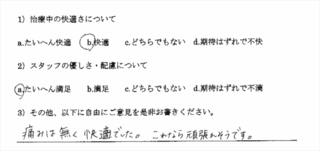 1）治療中の快適さについて
a.たいへん快適　b.快適　c.どちらでもない　d.期待はずれで不快
2）スタッフの優しさ・配慮について
a.たいへん満足　b.満足　c.どちらでもない　d.期待はずれで不満
3）その他、以下に自由にご意見を是非お書きください。
痛みは無く快適でした。これなら頑張れそうです。